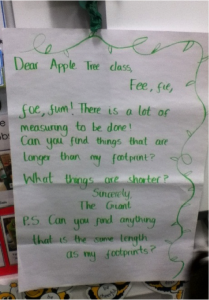 Dear Apple Tree class,
Fee, fie,
foe, fum! There is a lot of
measuring to be done!
Can you find things that are
longer than my footprint?
What things are shorter?
Sincerely,
The Giant
P.S Can you find anything
that is the same length
as my footprints?